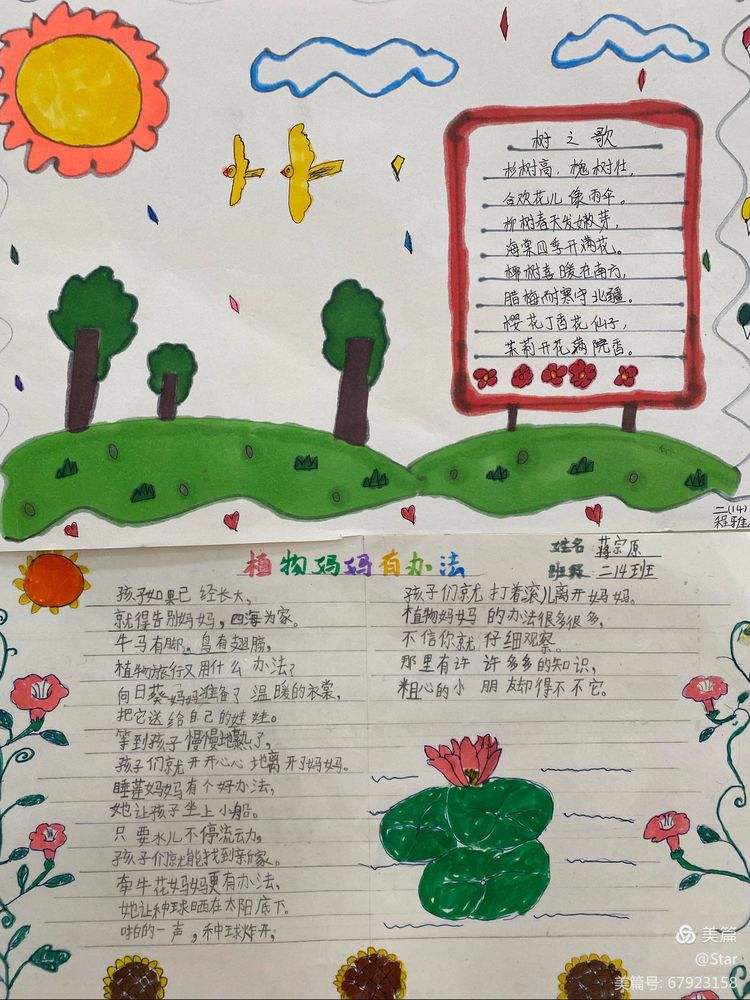 树之歌
杉树高,槐树壮,
合欢花儿像雨伞。
柳树春天发嫩芽,
海棠四季开满花。
椰树喜暖在南方,
腊梅耐寒守北疆。
樱花丁香花仙子,
茉莉开花满院香。
二(14)
程雅
植物妈妈有办法
姓名 蒋宗原
班级 二14班
孩子如果已 经长大,
就得告别妈妈,四海为家。
牛马有脚,鸟有翅膀,
植物旅行又用什么 办法?
向日葵妈妈准备了 温 暖的衣裳,
把它送给自己的娃娃。
等到孩子 慢慢地熟了,
孩子们就开开心心 地离开了妈妈。
睡莲妈妈有个好办法,
她让孩子坐上小船。
只要水儿不停流动,
孩子们就能找到新家。
牵牛花妈妈更有办法,
她让种球晒在太阳底下。
啪的一声,种球炸开,
孩子们就 打着滚儿离开妈妈。
植物妈妈 的办法很多很多,
不信你就 仔细观察。
那里有许 许多多的知识,
粗心的小 朋友却得不不它。
美篇
@Star
美篇号: 67923158